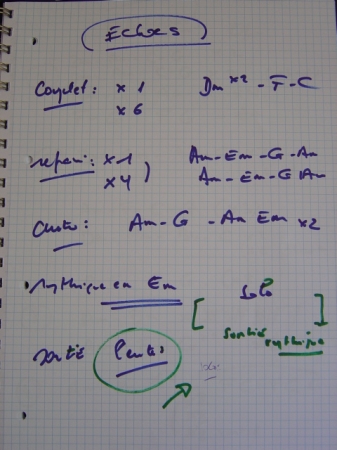 Echoes
Couplet : x 1 Dm x2 - F - C
x 6
refrain : x 1 Am - Em - G - Am
x 4 ) Am - Em - G Am
Am - G - Am Em x2
Rythmique en Em
Solo
Sortie rythmique
Sortie lente